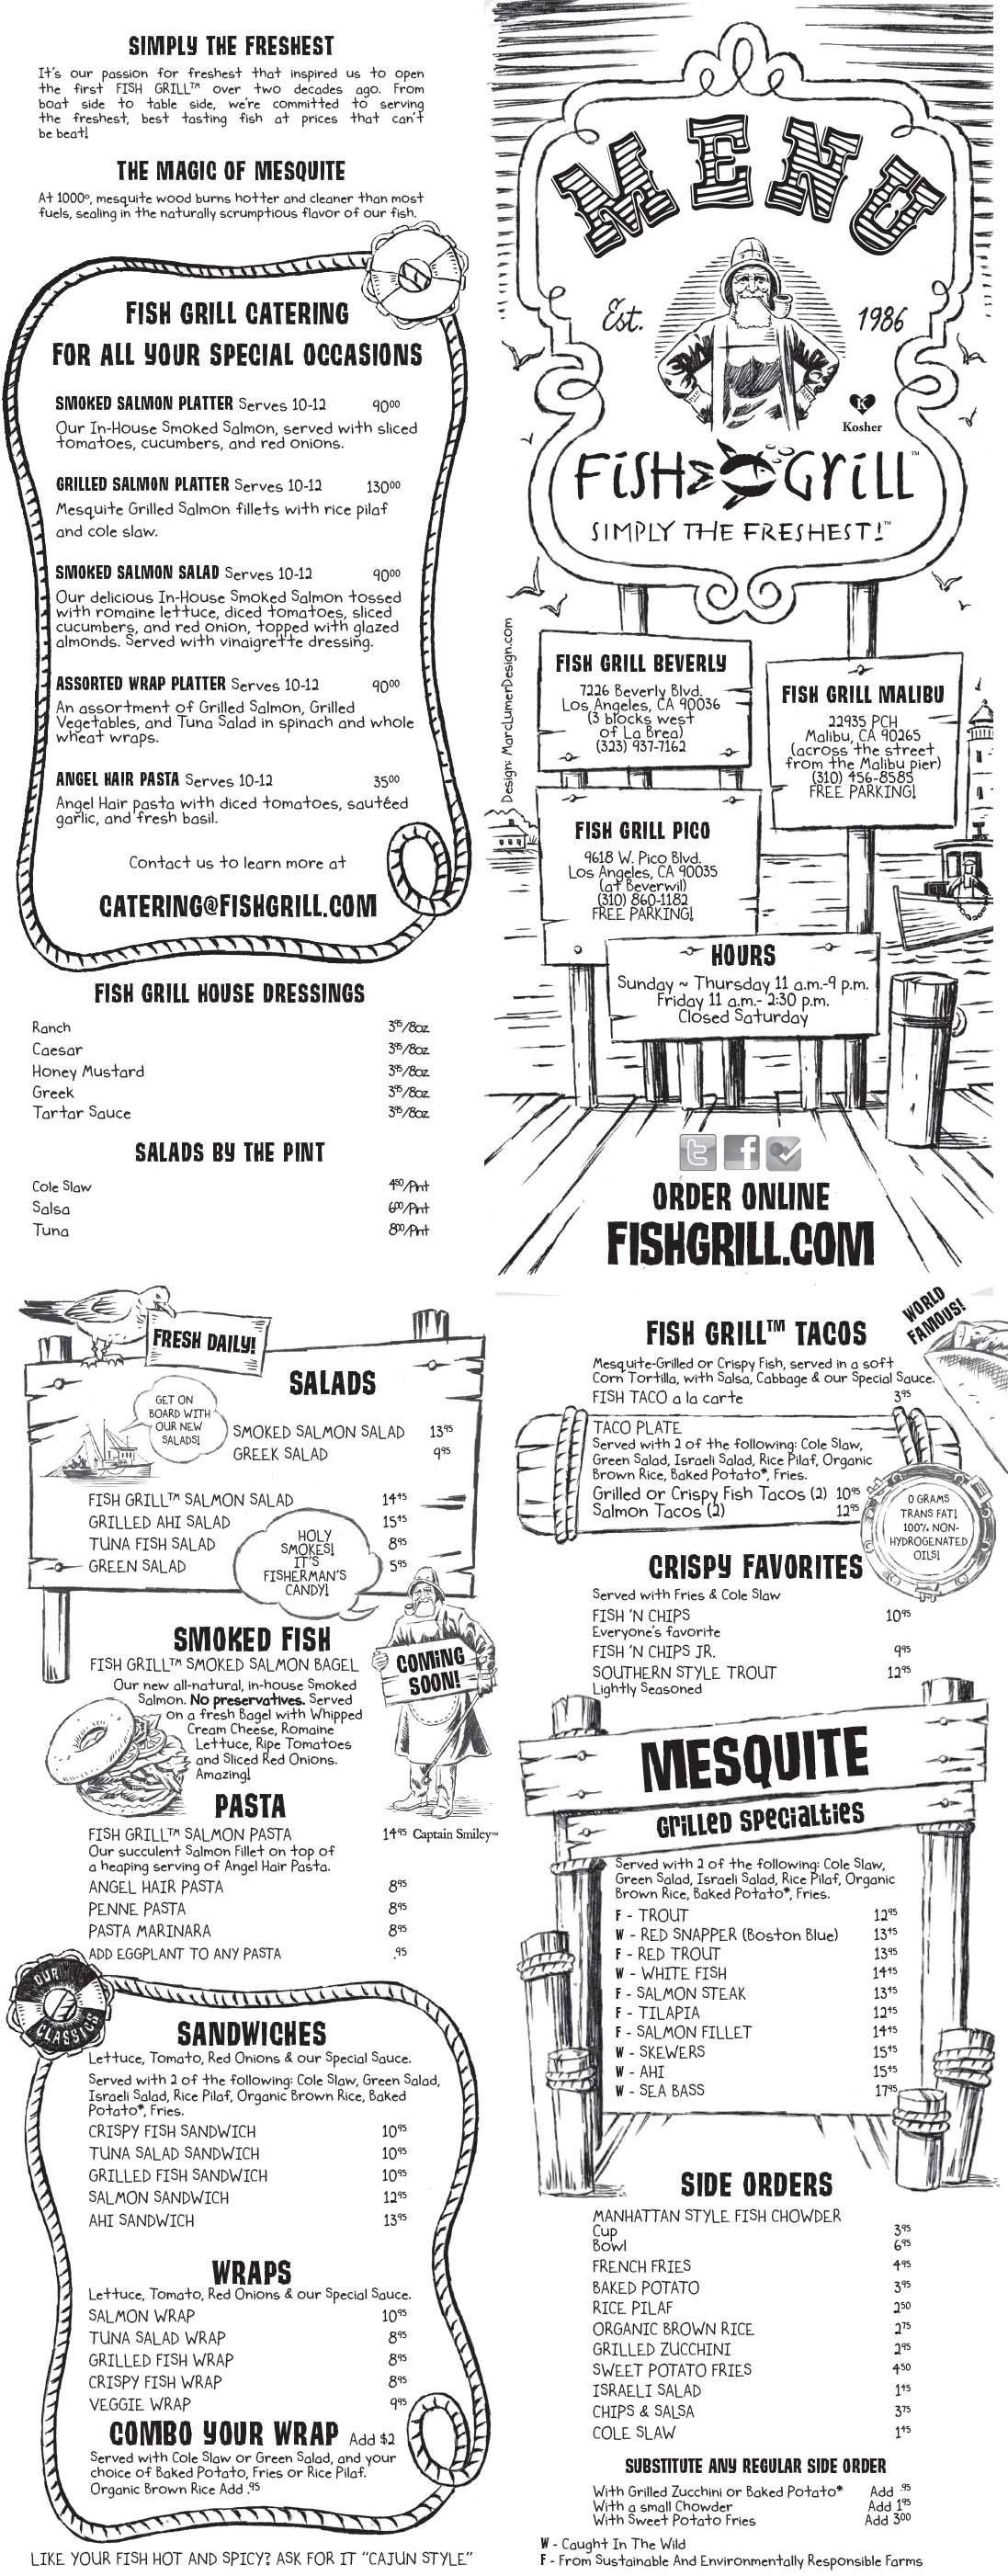 SIMPLY THE FRESHEST
It's our passion for freshest that inspired us to open
the first FISH GRILL™ over two decades ago. From
boat side to table side, we're committed to serving
the freshest, best tasting fish at prices that can't
be beat!
THE MAGIC OF MESQUITE
At 1000°, mesquite wood burns hotter and cleaner than most
fuels, sealing in the naturally scrumptious flavor of our fish.
FISH GRILL CATERING
FOR ALL YOUR SPECIAL OCCASIONS
SMOKED SALMON PLATTER Serves 10-12 90⁰⁰
Our In-House Smoked Salmon, served with sliced
tomatoes, cucumbers, and red onions.
GRILLED SALMON PLATTER Serves 10-12 130⁰⁰
Mesquite Grilled Salmon fillets with rice pilaf
and cole slaw.
SMOKED SALMON SALAD Serves 10-12 90⁰⁰
Our delicious In-House Smoked Salmon tossed
with romaine lettuce, diced tomatoes, sliced
cucumbers, and red onion, topped with glazed
almonds. Served with vinaigrette dressing.
ASSORTED WRAP PLATTER Serves 10-12 90⁰⁰
An assortment of Grilled Salmon, Grilled
Vegetables, and Tuna Salad in spinach and whole
wheat wraps.
ANGEL HAIR PASTA Serves 10-12 35⁰⁰
Angel Hair pasta with diced tomatoes, sautéed
garlic, and fresh basil.
Contact us to learn more at
CATERING@FISHGRILL.COM
FISH GRILL HOUSE DRESSINGS
Ranch 3⁹⁵/8oz
Caesar 3⁹⁵/8oz
Honey Mustard 3⁹⁵/8oz
Greek 3⁹⁵/8oz
Tartar Sauce 3⁹⁵/8oz
SALADS BY THE PINT
Cole Slaw 4⁵⁰/Pint
Salsa 6⁰⁰/Pint
Tuna 8⁰⁰/Pint
MENU
Est. 1986
K
Kosher
FISH GRILL™
SIMPLY THE FRESHEST!™
Design: MarcLumerDesign.com
FISH GRILL BEVERLY
7226 Beverly Blvd.
Los Angeles, CA 90036
(3 blocks west
of La Brea)
(323) 937-7162
FISH GRILL MALIBU
22935 PCH
Malibu, CA 90265
(across the street
from the Malibu pier)
(310) 456-8585
FREE PARKING!
FISH GRILL PICO
9618 W. Pico Blvd.
Los Angeles, CA 90035
(at Beverwil)
(310) 860-1182
FREE PARKING!
HOURS
Sunday ~ Thursday 11 a.m.-9 p.m.
Friday 11 a.m.- 2:30 p.m.
Closed Saturday
t f
ORDER ONLINE
FISHGRILL.COM
FRESH DAILY!
SALADS
GET ON
BOARD WITH
OUR NEW
SALADS!
SMOKED SALMON SALAD 13⁹⁵
GREEK SALAD 9⁹⁵
FISH GRILL™ SALMON SALAD 14⁴⁵
GRILLED AHI SALAD 15⁴⁵
TUNA FISH SALAD 8⁹⁵
GREEN SALAD 5⁹⁵
HOLY
SMOKES!
IT'S
FISHERMAN'S
CANDY!
SMOKED FISH
FISH GRILL™ SMOKED SALMON BAGEL
COMING
SOON!
Our new all-natural, in-house Smoked
Salmon. No preservatives. Served
on a fresh Bagel with Whipped
Cream Cheese, Romaine
Lettuce, Ripe Tomatoes
and Sliced Red Onions.
Amazing!
PASTA
FISH GRILL™ SALMON PASTA 14⁹⁵
Captain Smiley™
Our succulent Salmon Fillet on top of
a heaping serving of Angel Hair Pasta.
ANGEL HAIR PASTA 8⁹⁵
PENNE PASTA 8⁹⁵
PASTA MARINARA 8⁹⁵
ADD EGGPLANT TO ANY PASTA .95
OUR
CLASSICS
SANDWICHES
Lettuce, Tomato, Red Onions & our Special Sauce.
Served with 2 of the following: Cole Slaw, Green Salad,
Israeli Salad, Rice Pilaf, Organic Brown Rice, Baked
Potato*, Fries.
CRISPY FISH SANDWICH 10⁹⁵
TUNA SALAD SANDWICH 10⁹⁵
GRILLED FISH SANDWICH 10⁹⁵
SALMON SANDWICH 12⁹⁵
AHI SANDWICH 13⁹⁵
WRAPS
Lettuce, Tomato, Red Onions & our Special Sauce.
SALMON WRAP 10⁹⁵
TUNA SALAD WRAP 8⁹⁵
GRILLED FISH WRAP 8⁹⁵
CRISPY FISH WRAP 8⁹⁵
VEGGIE WRAP 9⁹⁵
COMBO YOUR WRAP Add $2
Served with Cole Slaw or Green Salad, and your
choice of Baked Potato, Fries or Rice Pilaf.
Organic Brown Rice Add .95
LIKE YOUR FISH HOT AND SPICY? ASK FOR IT "CAJUN STYLE"
WORLD
FAMOUS!
FISH GRILL™ TACOS
Mesquite-Grilled or Crispy Fish, served in a soft
Corn Tortilla, with Salsa, Cabbage & our Special Sauce.
FISH TACO a la carte 3⁹⁵
TACO PLATE
Served with 2 of the following: Cole Slaw,
Green Salad, Israeli Salad, Rice Pilaf, Organic
Brown Rice, Baked Potato*, Fries.
Grilled or Crispy Fish Tacos (2) 10⁹⁵
Salmon Tacos (2) 12⁹⁵
0 GRAMS
TRANS FAT!
100% NON-
HYDROGENATED
OILS!
CRISPY FAVORITES
Served with Fries & Cole Slaw
FISH 'N CHIPS 10⁹⁵
Everyone's favorite
FISH 'N CHIPS JR. 9⁹⁵
SOUTHERN STYLE TROUT 12⁹⁵
Lightly Seasoned
MESQUITE
Grilled Specialties
Served with 2 of the following: Cole Slaw,
Green Salad, Israeli Salad, Rice Pilaf, Organic
Brown Rice, Baked Potato*, Fries.
F - TROUT 12⁹⁵
W - RED SNAPPER (Boston Blue) 13⁴⁵
F - RED TROUT 13⁹⁵
W - WHITE FISH 14⁴⁵
F - SALMON STEAK 13⁴⁵
F - TILAPIA 12⁴⁵
F - SALMON FILLET 14⁴⁵
W - SKEWERS 15⁴⁵
W - AHI 15⁴⁵
W - SEA BASS 17⁹⁵
SIDE ORDERS
MANHATTAN STYLE FISH CHOWDER
Cup 3⁹⁵
Bowl 6⁹⁵
FRENCH FRIES 4⁹⁵
BAKED POTATO 3⁹⁵
RICE PILAF 2⁵⁰
ORGANIC BROWN RICE 2⁷⁵
GRILLED ZUCCHINI 2⁹⁵
SWEET POTATO FRIES 4⁵⁰
ISRAELI SALAD 1⁴⁵
CHIPS & SALSA 3⁷⁵
COLE SLAW 1⁴⁵
SUBSTITUTE ANY REGULAR SIDE ORDER
With Grilled Zucchini or Baked Potato* Add .95
With a small Chowder Add 1⁹⁵
With Sweet Potato Fries Add 3⁰⁰
W - Caught In The Wild
F - From Sustainable And Environmentally Responsible Farms